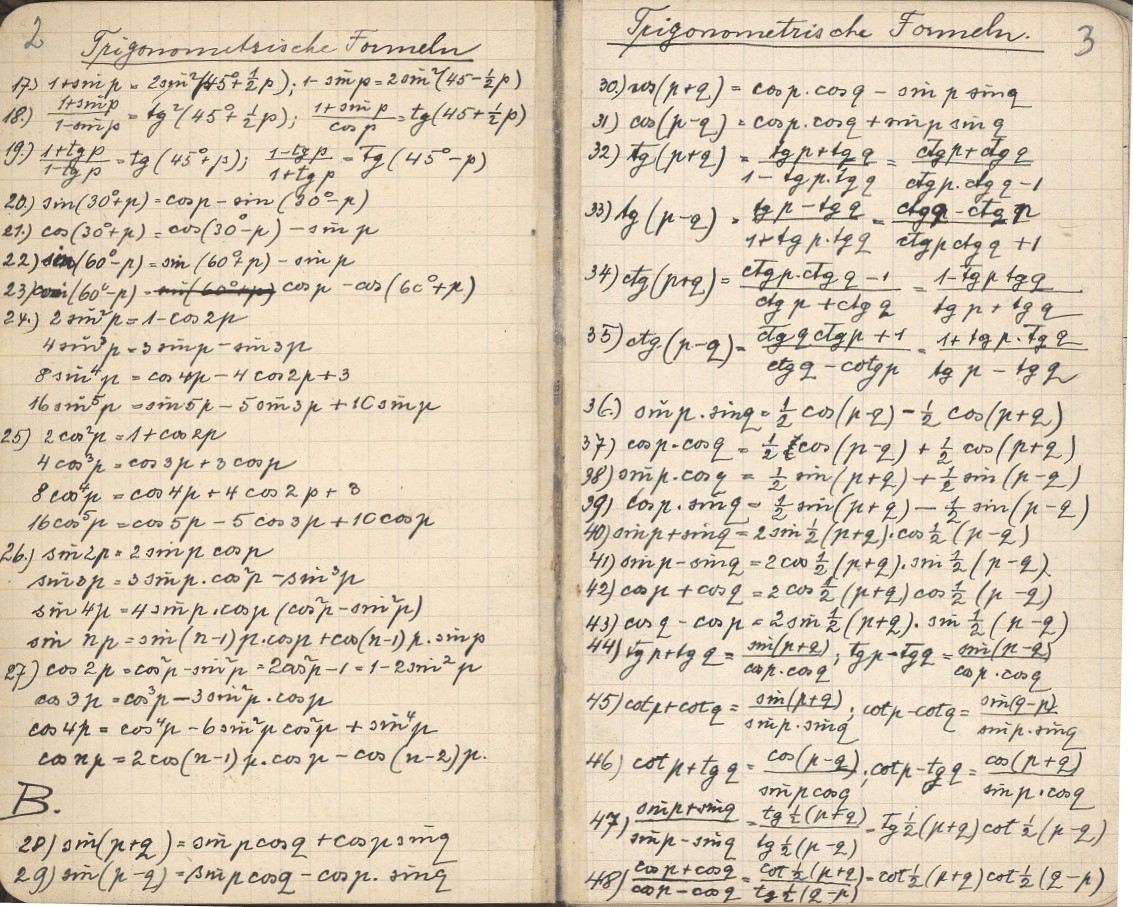 2
Trigonometrische Formeln
17.) 1+sin p = 2sin²(45°+½p); 1-sin p = 2sin²(45-½p)
18.) (1+sin p)/(1-sin p) = tg²(45°+½p); (1+sin p)/(cos p) = tg(45+½p)
19.) (1+tg p)/(1-tg p) = tg(45°+p); (1-tg p)/(1+tg p) = Tg(45°-p)
20.) sin(30°+p) = cos p - sin(30°-p)
21.) cos(30°+p) = cos(30°-p) - sin p
22) sin(60°-p) = sin(60°+p) - sin p
23) cos(60°-p) = sin(60°+p) cos p - cos(60°+p)
24.) 2sin²p = 1-cos2p
4sin³p = 3sin p - sin3p
8sin⁴p = cos4p - 4cos2p+3
16sin⁵p = sin5p - 5sin3p + 10sin p
25) 2cos²p = 1+cos2p
4cos³p = cos3p + 3cos p
8cos⁴p = cos4p + 4cos2p + 3
16cos⁵p = cos5p - 5cos3p + 10cos p
26.) sin2p = 2sin p cos p
sin3p = 3sin p · cos²p - sin³p
sin4p = 4sin p · cos p (cos²p - sin²p)
sin np = sin(n-1)p · cos p + cos(n-1)p · sin p
27) cos2p = cos²p - sin²p = 2cos²p-1 = 1-2sin²p
cos3p = cos³p - 3sin²p · cos p
cos4p = cos⁴p - 6sin²p cos²p + sin⁴p
cos np = 2cos(n-1)p · cos p - cos(n-2)p.
B.
28) sin(p+q) = sin p cos q + cos p sin q
29) sin(p-q) = sin p cos q - cos p · sin q
Trigonometrische Formeln.
3
30.) cos(p+q) = cos p · cos q - sin p sin q
31) cos(p-q) = cos p · cos q + sin p sin q
32) tg(p+q) = (tg p + tg q)/(1-tg p · tg q) = (ctg p + ctg q)/(ctg p · ctg q - 1)
33) tg(p-q) = (tg p - tg q)/(1+tg p · tg q) = (ctg q - ctg p)/(ctg p ctg q + 1)
34) ctg(p+q) = (ctg p · ctg q - 1)/(ctg p + ctg q) = (1-tg p tg q)/(tg p + tg q)
35) ctg(p-q) = (ctg q ctg p + 1)/(ctg q - cotg p) = (1+tg p · tg q)/(tg p - tg q)
36.) sin p · sin q = ½ cos(p-q) - ½ cos(p+q)
37) cos p · cos q = ½ cos(p-q) + ½ cos(p+q)
38) sin p · cos q = ½ sin(p+q) + ½ sin(p-q)
39) cos p · sin q = ½ sin(p+q) - ½ sin(p-q)
40) sin p + sin q = 2sin½(p+q) · cos½(p-q)
41) sin p - sin q = 2cos½(p+q) · sin½(p-q)
42) cos p + cos q = 2cos½(p+q) cos½(p-q)
43) cos q - cos p = 2sin½(p+q) · sin½(p-q)
44) tg p + tg q = sin(p+q)/(cos p · cos q); tg p - tg q = sin(p-q)/(cos p · cos q)
45) cot p + cot q = sin(p+q)/(sin p · sin q); cot p - cot q = sin(q-p)/(sin p · sin q)
46) cot p + tg q = cos(p-q)/(sin p cos q); cot p - tg q = cos(p+q)/(sin p · cos q)
47) (sin p + sin q)/(sin p - sin q) = tg½(p+q)/tg½(p-q) = tg½(p+q) cot½(p-q)
48) (cos p + cos q)/(cos p - cos q) = cot½(p+q)/tg½(q-p) = cot½(p+q) cot½(q-p)